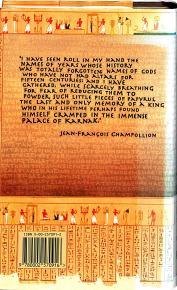 'I HAVE SEEN ROLL IN MY HAND THE
NAMES OF YEARS WHOSE HISTORY
WAS TOTALLY FORGOTTEN NAMES OF GODS
WHO HAVE NOT HAD ALTARS FOR
FIFTEEN CENTURIES AND I HAVE
GATHERED, WHILE SCARCELY BREATHING
FOR FEAR OF REDUCING THEM TO
POWDER SUCH LITTLE PIECES OF PAPYRUS
THE LAST AND ONLY MEMORY OF A KING
WHO IN HIS LIFETIME PERHAPS FOUND
HIMSELF CRAMPED IN THE IMMENSE
PALACE OF KARNAK'
JEAN-FRANÇOIS CHAMPOLLION